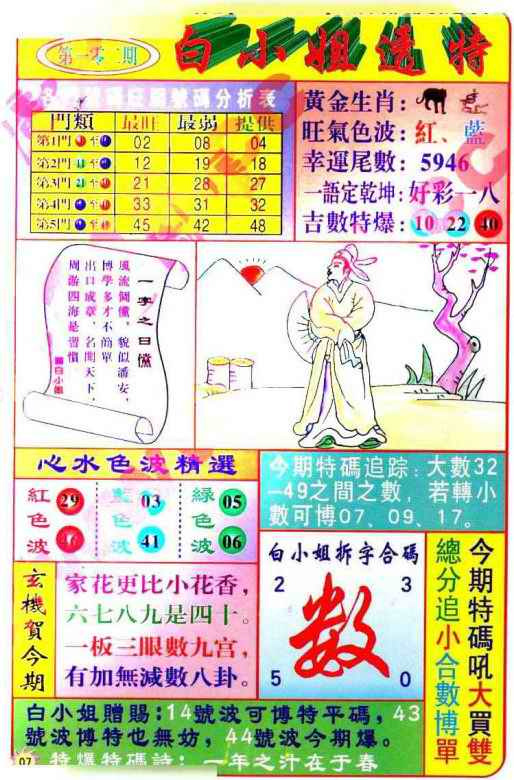 第一零二期
白小姐透特
門類 最旺 最弱 提供
第1門 至 02 08 04
第2門 至 12 19 18
第3門 至 21 28 27
第4門 至 33 31 32
第5門 至 45 42 48
黃金生肖:
旺氣色波: 紅、藍
幸運尾數: 5946
一語定乾坤: 好彩一八
吉數特爆: 10 22 40
一字之曰:億
風流倜儻,貌似潘安,
博學多才不簡單
出口成章,名聞天下,
周游四海是習慣
白小姐
心水色波精選
紅色波 29 46
藍色波 03 41
綠色波 05 06
今期特碼追踪: 大數32
—49之間之數,若轉小
數可博07、09、17。
玄機賀今期
家花更比小花香,
六七八九是四十。
一板三眼數九宫,
有加無減數八卦。
白小姐拆字合碼
2 3
數
5 0
今期特碼吼大買雙
總分追小合數博單
白小姐贈賜: 14號波可博特平碼, 43
號波博特也無妨, 44號波今期爆。
07 特爆特碼詩: 一年之汁在于春